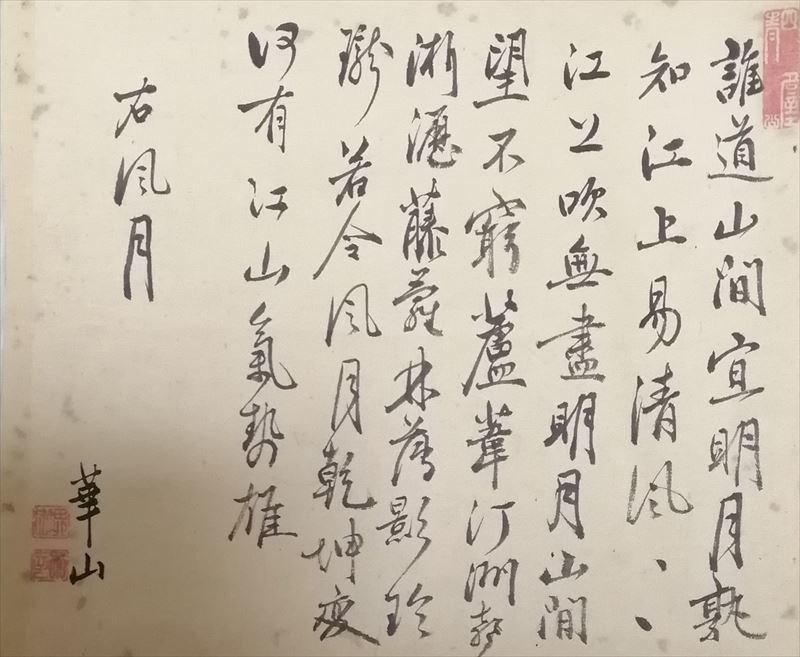 誰道山間宜明月孰
知江上易清風、、
江上吹無盡明月山間
望不窮蘆葦汀洲聲
淅瀝藤蘿林薄影玲
瓏若令風月乾坤
何有江山氣勢雄
右風月
華山